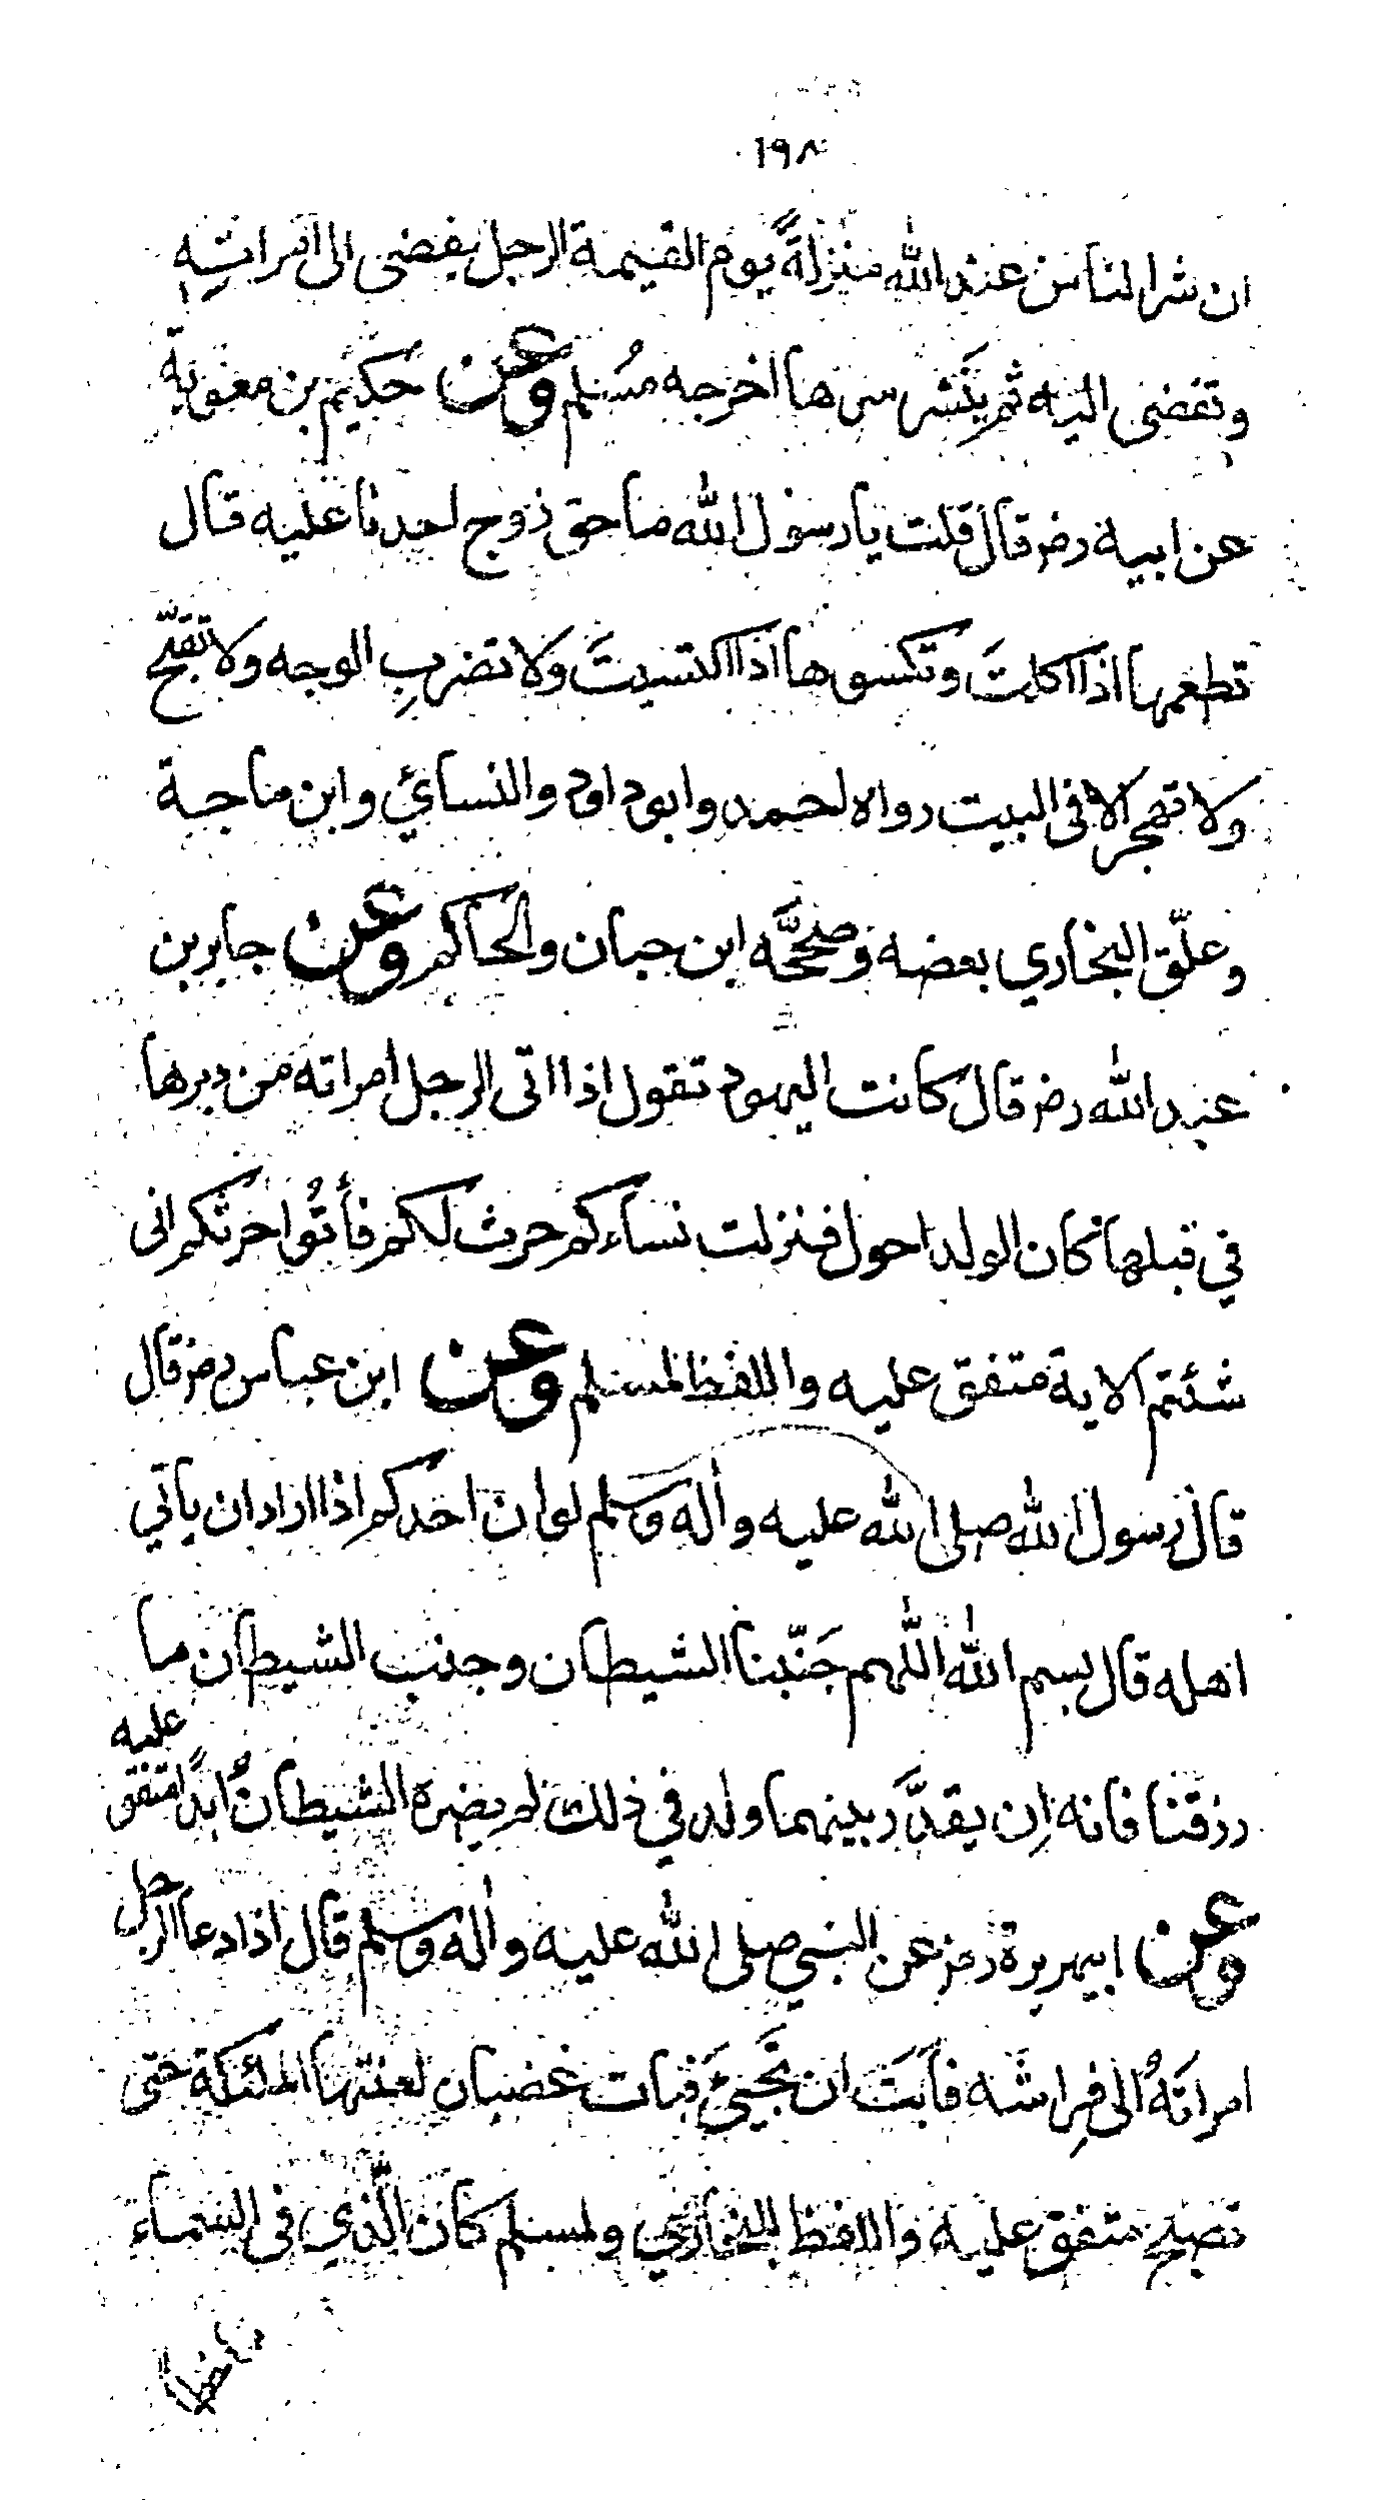 ١٩٨
ان شر الناس عند الله منزلةً يوم القيمة الرجل يفضى الى امراتِهِ
وتفضى اليه ثم ينَشر سرها اخرجه مُسلم وعن حكيم بن معوية
عن ابيه رضر قال قلت يا رسول الله ما حق زوج احدنا عليه قال
تطعمها اذا اكلتَ وتكسوها اذا اكتسيتَ ولا تضربِ الوجه ولا تقبّح
ولا تهجر الا فى البيت رواه احمد وابو داود والنسائي وابن ماجة
وعلّق البخاري بعضه وصححَّه ابن حبان والحاكم وعن جابر بن
عبد الله رضر قال كانت اليهود تقول اذا اتى الرجل امراته من دبرها
في قبلها كان الولد احول فنزلت نساءكم حرث لكم فأتُوا حرثكم انى
شئتم الاية متفق عليه واللفظ لمسلم وعن ابن عباس رضر قال
قال رسول الله صلى الله عليه واله وسلم لو ان احدكم اذا اراد ان ياتي
اهله قال بسم الله اللهم جَنّبنا الشيطان وجنب الشيطان ما
رزقتنا فانه اِن يقدَّر بينهما ولد في ذلك لم يضره الشيطانُ ابدًا متفق عليه
وعن ابيهريرة رضر عن النبي صلى الله عليه واله وسلم قال اذا دعا الرجل
امراتَهُ الى فِراشه فابَتَ ان تَجيئَ فبات غضبان لعنتها الملئكة حتى
تصبح متفق عليه واللفظ للبخاري ولمسلم كان الّذي فى السماء